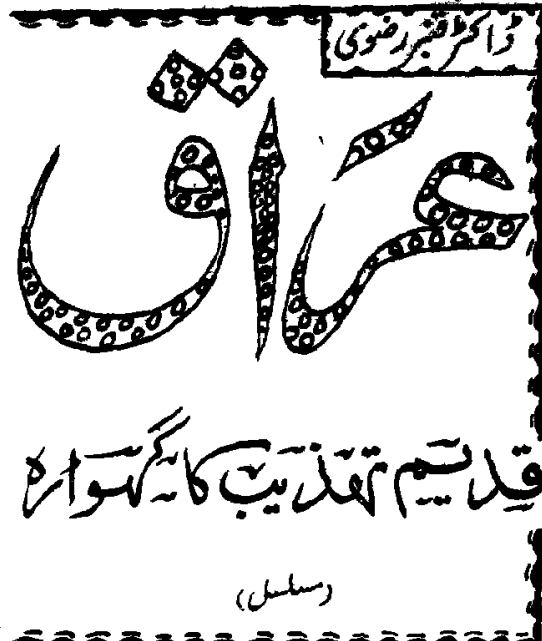 ڈاکٹر قنبر رضوی
عرَاق
قدیم تہذیب کا گہوارہ
(مسلسل)